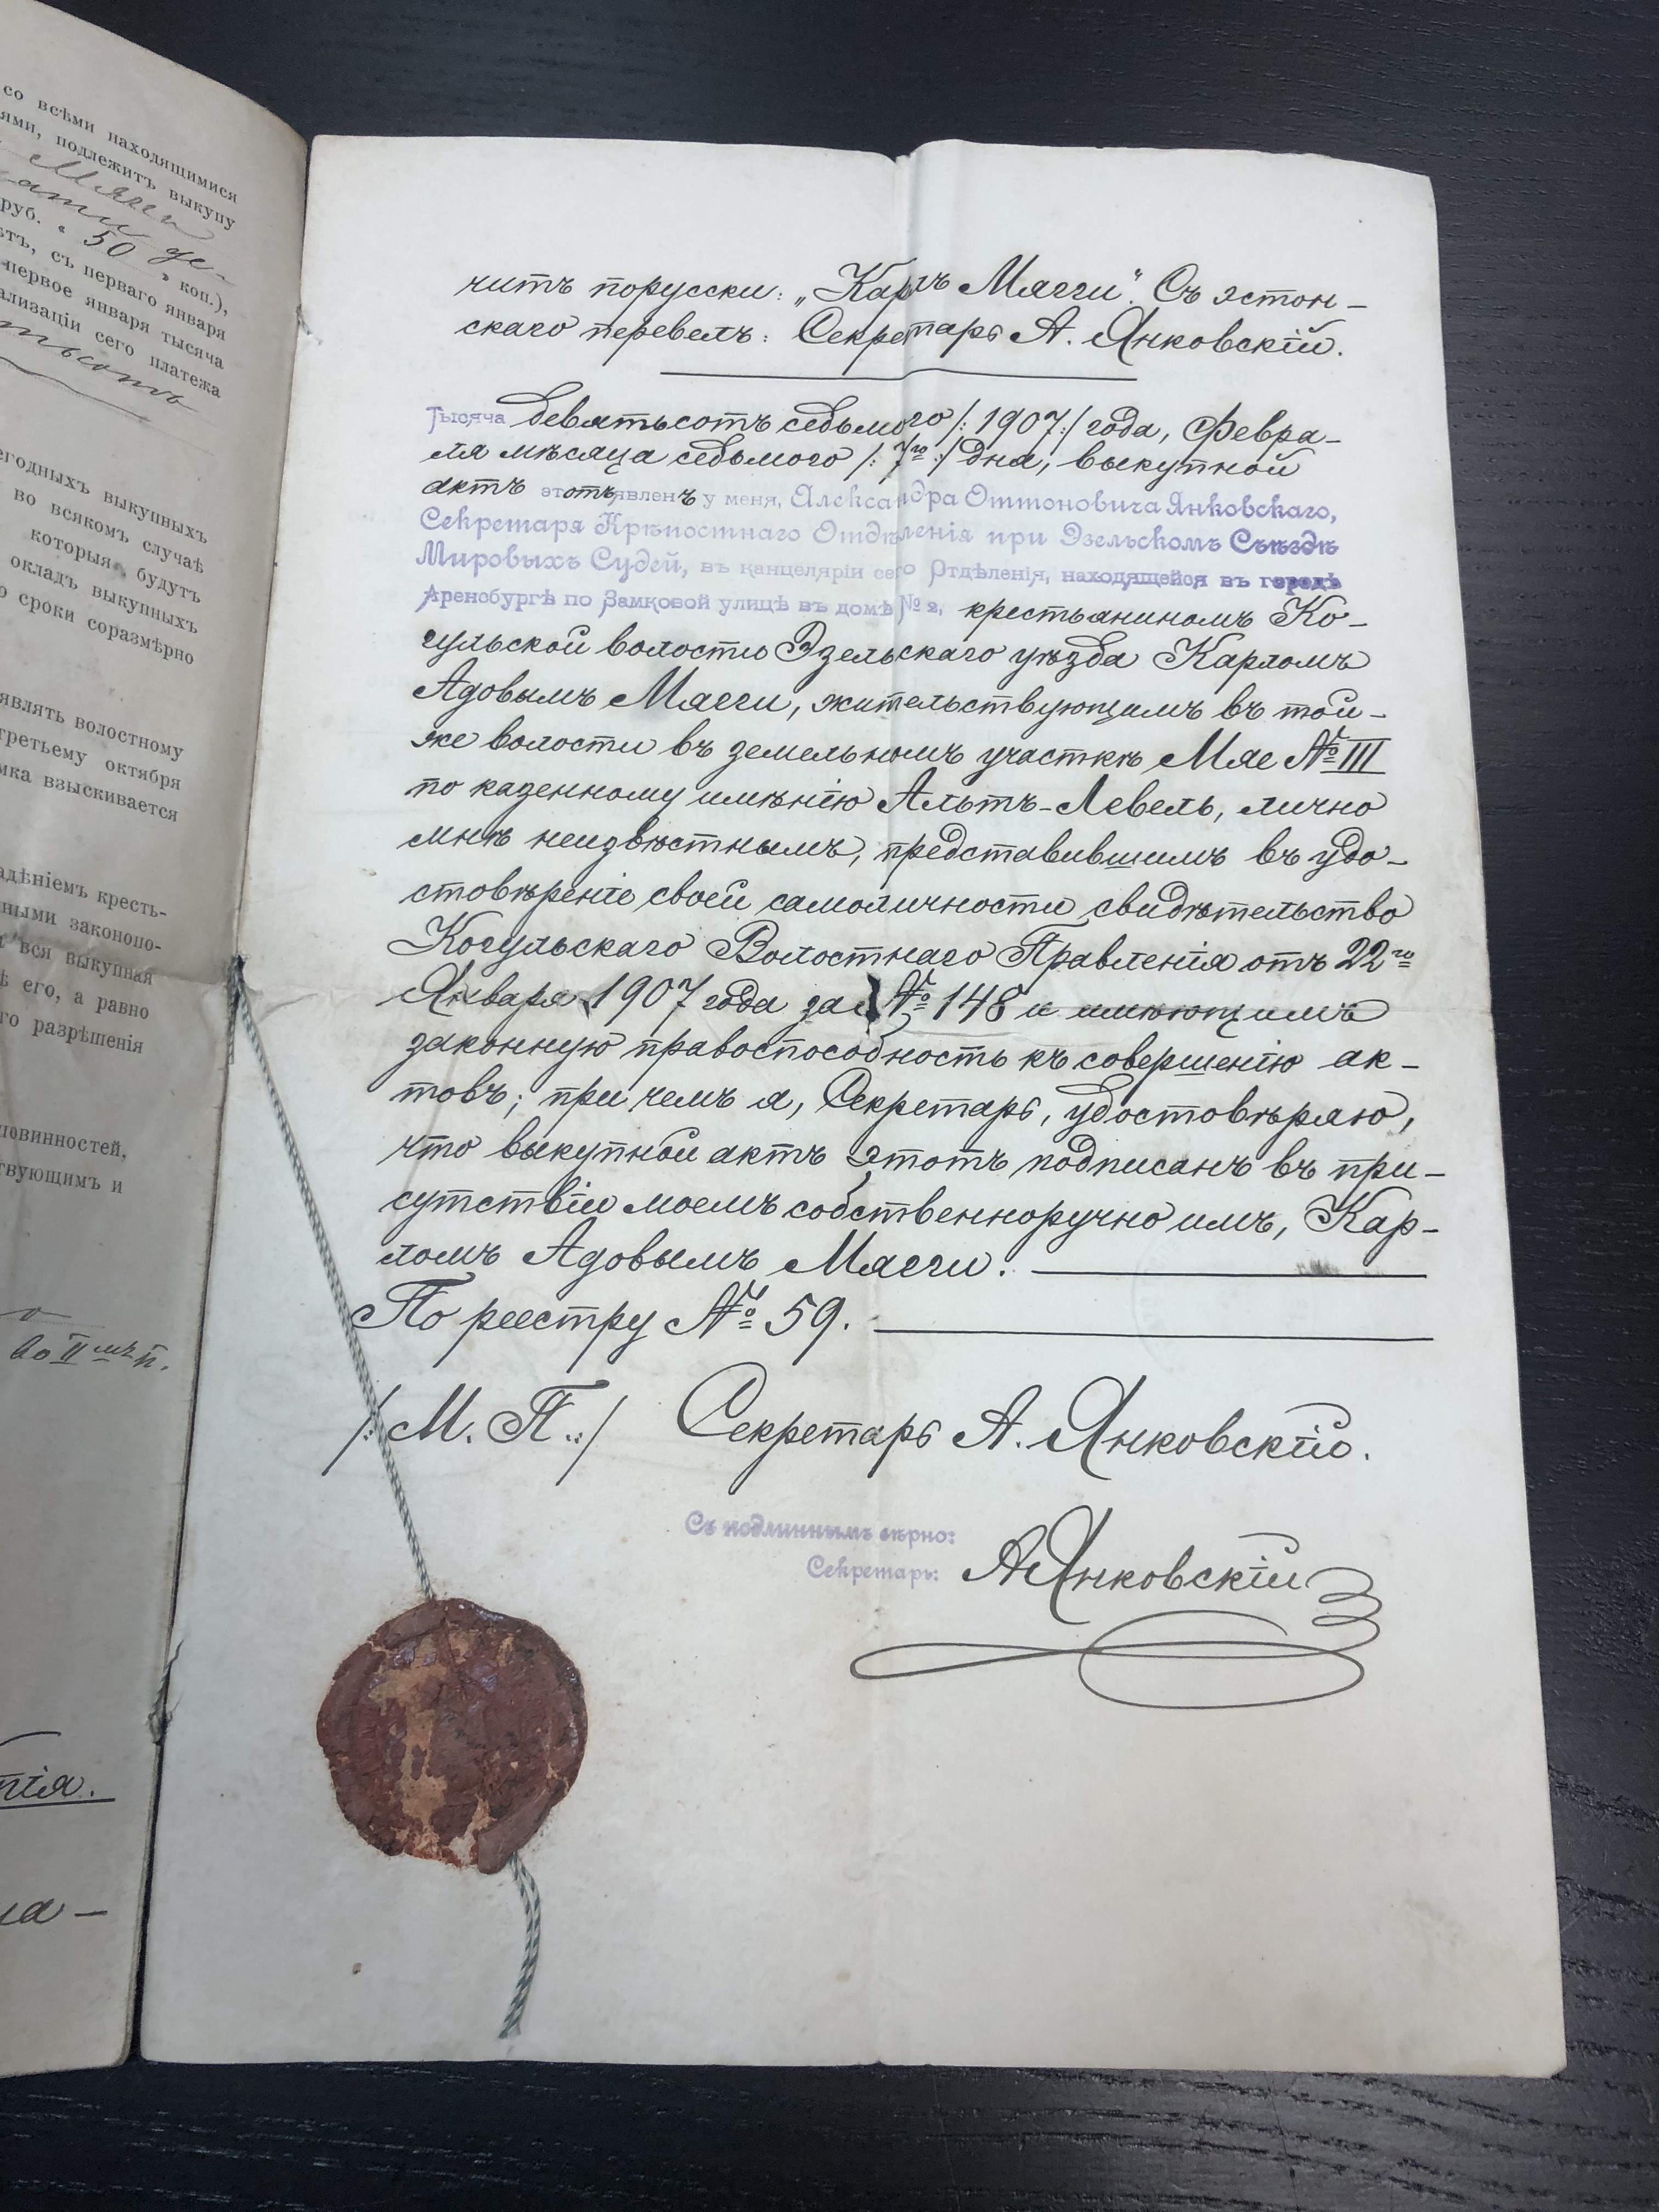 со всѣми находящимися
ями, подлежитъ выкупу
Мягги
руб. " 50 " коп.),
ѣтъ, съ перваго января
первое января тысяча
ализаціи сего платежа
егодныхъ выкупныхъ
во всякомъ случаѣ
которыя будутъ
окладъ выкупныхъ
о сроки соразмѣрно
являть волостному
третьему октября
мка взыскивается
адѣніемъ кресть-
ными законопо-
вся выкупная
ѣ его, а равно
го разрѣшенія
повинностей,
твующимъ и
во II мъ п.
нія.
на-
читъ порусски: „Карлъ Мягги". Съ эстон-
скаго перевелъ: Секретарь А. Янковскій.
Тысяча девятьсотъ седьмого /:1907:/ года, Февра-
ля мѣсяца седьмого /: 7го :/ дня, выкупной
актъ этотъ явленъ у меня, Александра Оттоновича Янковскаго,
Секретаря Крѣпостнаго Отдѣленія при Эзельскомъ Съѣздѣ
Мировыхъ Судей, въ канцеляріи сего Отдѣленія, находящейся въ городѣ
Аренсбургѣ по Замковой улицѣ въ домѣ № 2, крестьяниномъ Ко-
гульской волости Эзельскаго уѣзда Карломъ
Адовымъ Мягги, жительствующимъ въ той-
же волости въ земельномъ участкѣ Мяе № III
по казенному имѣнію Альтъ-Левель, лично
мнѣ неизвѣстнымъ, представившимъ въ удо-
стовѣреніе своей самоличности свидѣтельство
Когульскаго Волостнаго Правленія отъ 22го
Января 1907 года за № 148 и имѣющимъ
законную правоспособность къ совершенію ак-
товъ; при чемъ я, Секретарь, удостовѣряю,
что выкупной актъ этотъ подписанъ въ при-
сутствіи моемъ собственноручно имъ, Кар-
ломъ Адовымъ Мягги.
По реестру № 59.
/: М. П. :/ Секретарь А. Янковскій.
Съ подлиннымъ вѣрно:
Секретарь: АЯнковскій